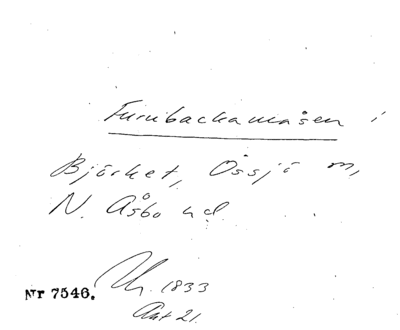 Furubackamåsen i
Björket, Össjö m,
N. Åsbo hd
Nr 7546. 1833
Akt 21.